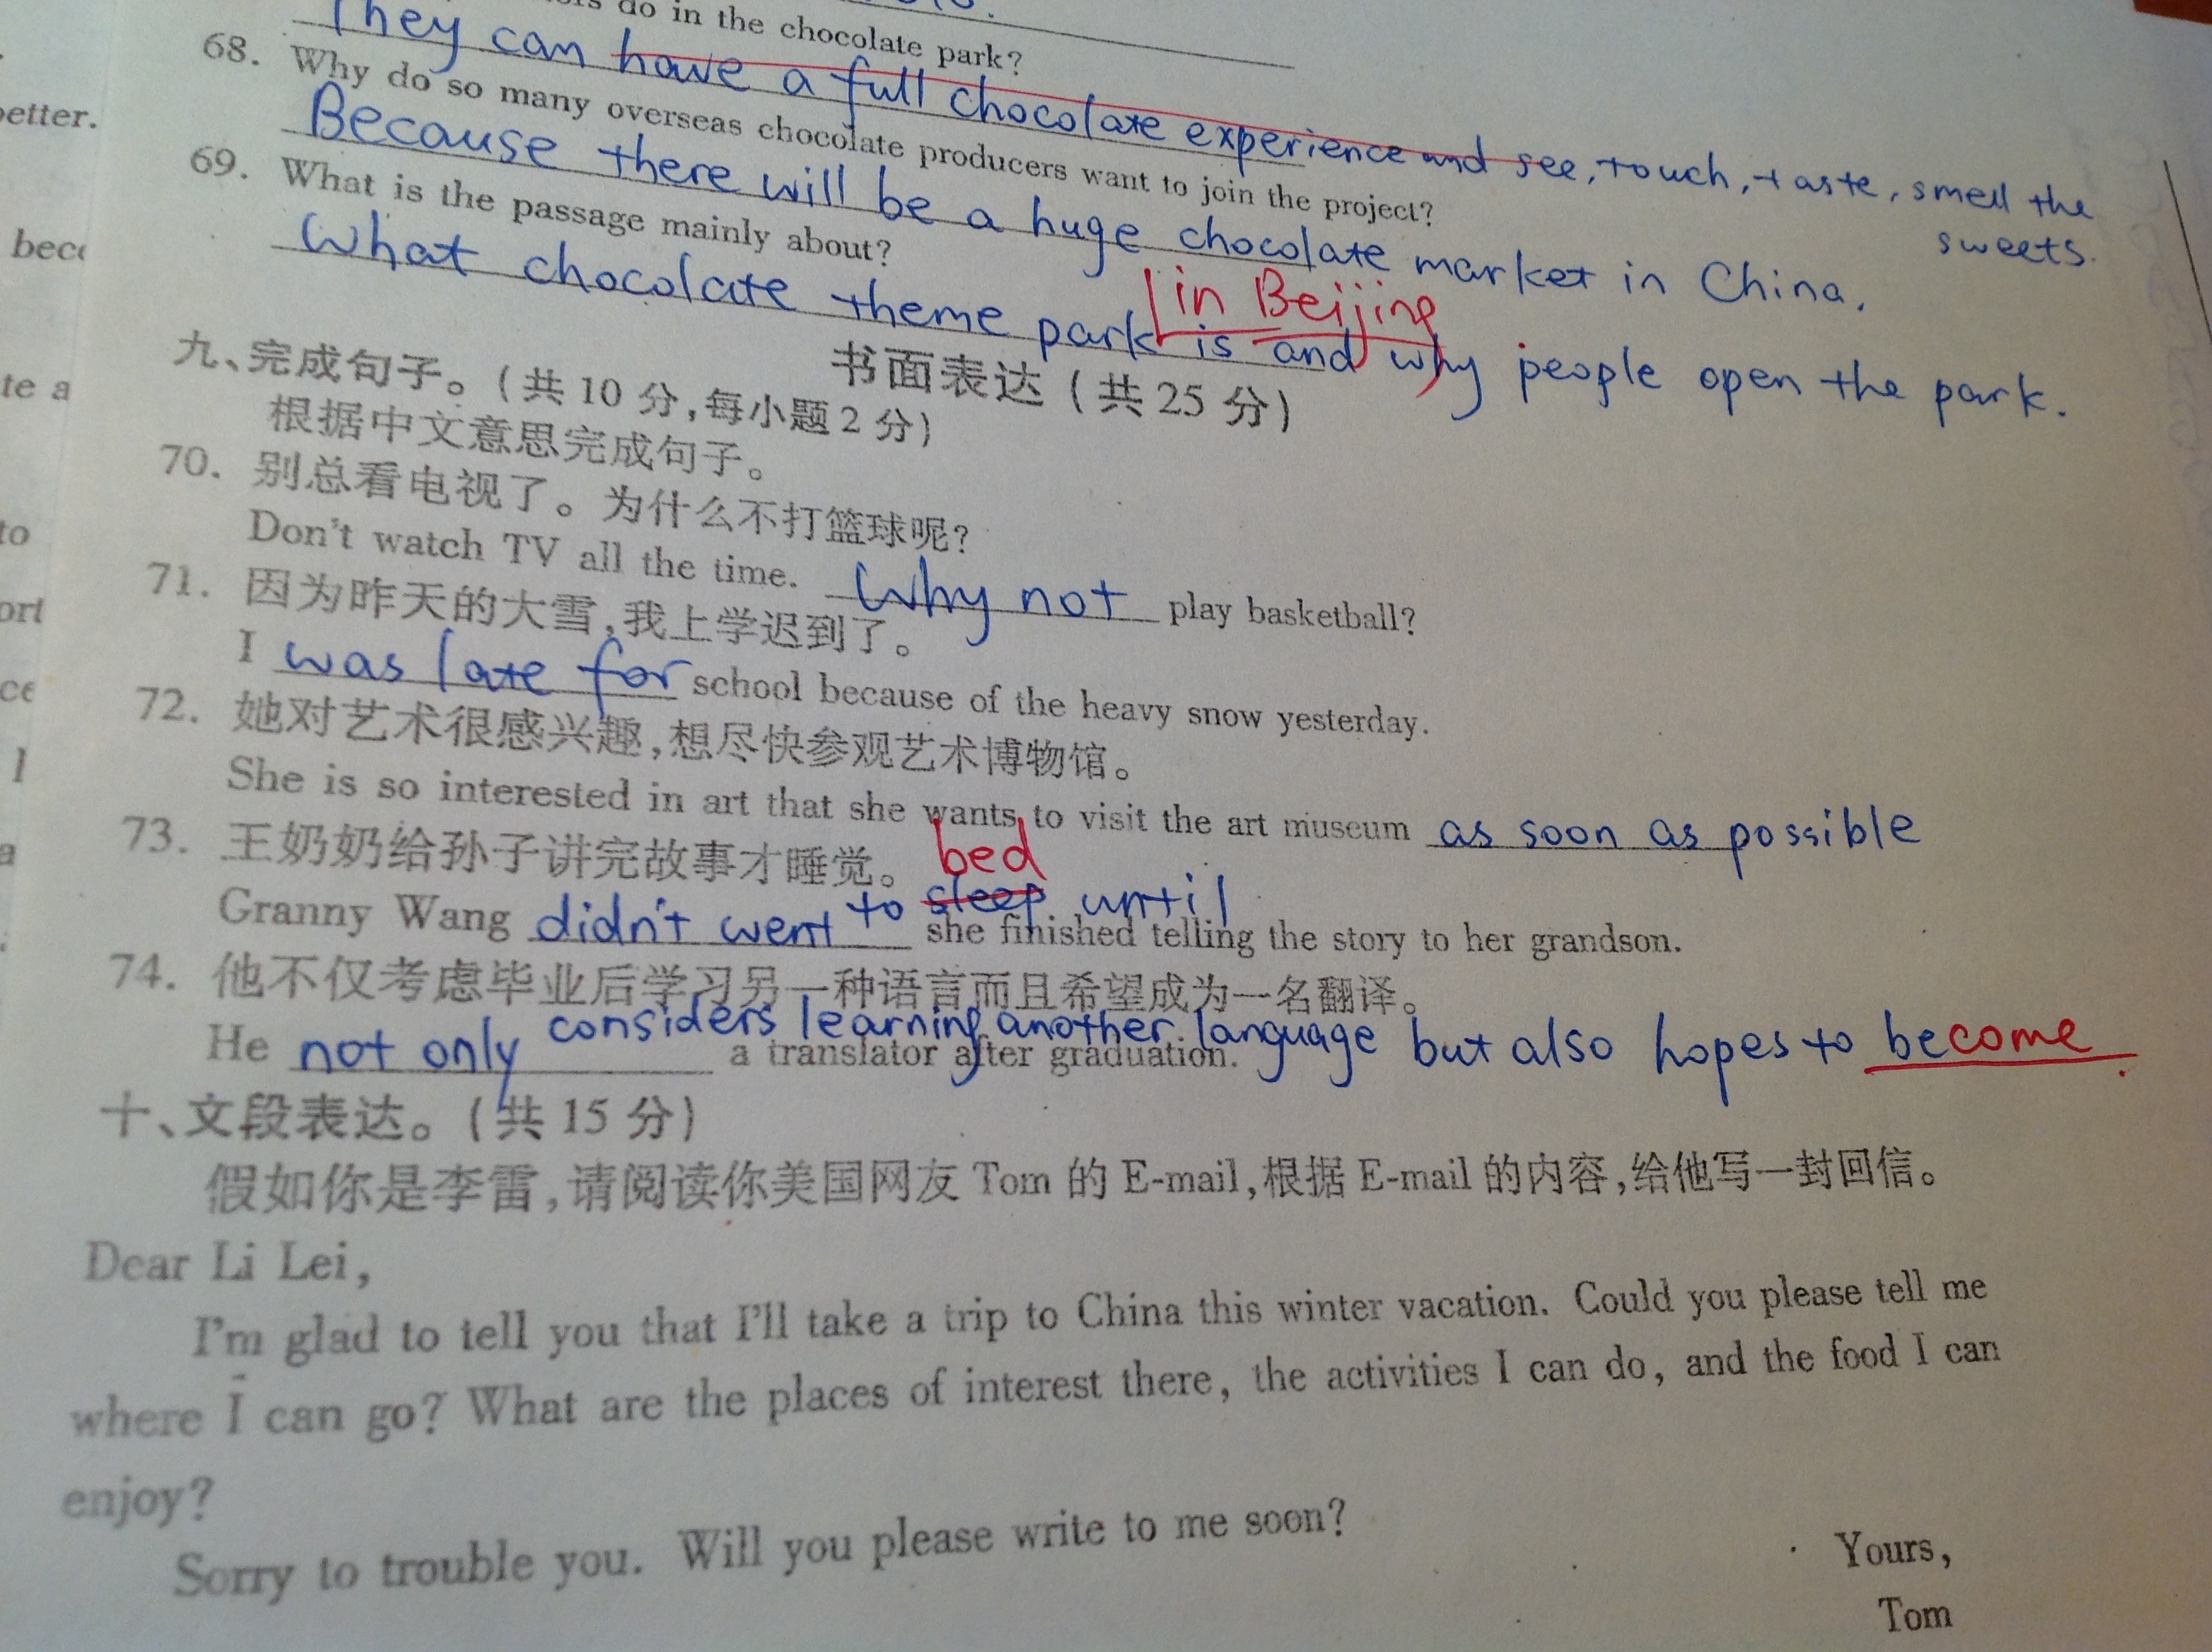 do in the chocolate park?
They can have a full chocolate experience and see, touch, taste, smell the
sweets.
68. Why do so many overseas chocolate producers want to join the project?
Because there will be a huge chocolate market in China.
69. What is the passage mainly about?
in Beijing
What chocolate theme park is and why people open the park.
书面表达(共25分)
九、完成句子。(共10分,每小题2分)
根据中文意思完成句子。
70. 别总看电视了。为什么不打篮球呢?
Don't watch TV all the time. Why not play basketball?
71. 因为昨天的大雪,我上学迟到了。
I was late for school because of the heavy snow yesterday.
72. 她对艺术很感兴趣,想尽快参观艺术博物馆。
She is so interested in art that she wants to visit the art museum as soon as possible
73. 王奶奶给孙子讲完故事才睡觉。
bed
Granny Wang didn't went to sleep until she finished telling the story to her grandson.
74. 他不仅考虑毕业后学习另一种语言而且希望成为一名翻译。
He not only considers learning another language but also hopes to become a translator after graduation.
十、文段表达。(共15分)
假如你是李雷,请阅读你美国网友 Tom 的 E-mail,根据 E-mail 的内容,给他写一封回信。
Dear Li Lei,
I'm glad to tell you that I'll take a trip to China this winter vacation. Could you please tell me
where I can go? What are the places of interest there, the activities I can do, and the food I can
enjoy?
Sorry to trouble you. Will you please write to me soon?
Yours,
Tom
etter.
te a
to
ort
ce